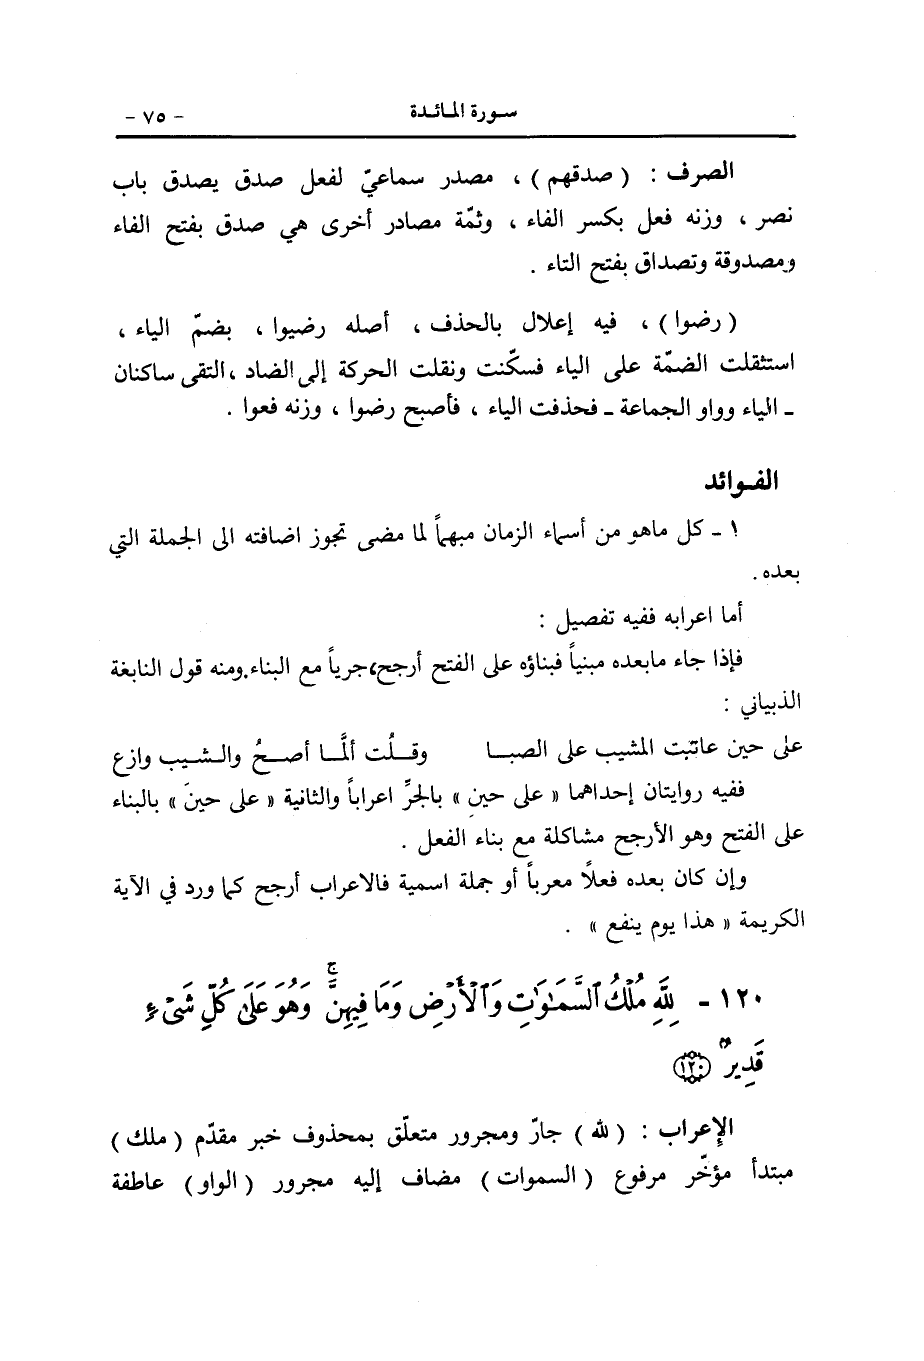 سورة المائدة - ٧٥ -
الصرف : ( صدقهم ) ، مصدر سماعيّ لفعل صدق يصدق باب
نصر ، وزنه فعل بكسر الفاء ، وثمّة مصادر أخرى هي صدق بفتح الفاء
ومصدوقة وتصداق بفتح التاء .
( رضوا ) ، فيه إعلال بالحذف ، أصله رضيوا ، بضمّ الياء ،
استثقلت الضمّة على الياء فسكّنت ونقلت الحركة إلى الضاد ، التقى ساكنان
ـ الياء وواو الجماعة ـ فحذفت الياء ، فأصبح رضوا ، وزنه فعوا .
الفوائد
١ ـ كل ماهو من أسماء الزمان مبهماً لما مضى تجوز اضافته الى الجملة التي
بعده .
أما اعرابه ففيه تفصيل :
فإذا جاء مابعده مبنياً فبناؤه على الفتح أرجح، جرياً مع البناء. ومنه قول النابغة
الذبياني :
على حين عاتبت المشيب على الصبا وقلُت ألَّما أصحُ والشيب وازع
ففيه روايتان إحداهما « على حينِ » بالجرِّ اعراباً والثانية « على حينَ » بالبناء
على الفتح وهو الأرجح مشاكلة مع بناء الفعل .
وإن كان بعده فعلًا معرباً أو جملة اسمية فالاعراب أرجح كما ورد في الآية
الكريمة « هذا يوم ينفع » .
١٢٠ - لِلَّهِ مُلْكُ ٱلسَّمَٰوَٰتِ وَٱلْأَرْضِ وَمَا فِيهِنَّ ۚ وَهُوَ عَلَىٰ كُلِّ شَىْءٍ
قَدِيرٌۢ ﴿١٢٠﴾
الإعراب : ( لله ) جارّ ومجرور متعلّق بمحذوف خبر مقدّم ( ملك )
مبتدأ مؤخّر مرفوع ( السموات ) مضاف إليه مجرور ( الواو ) عاطفة